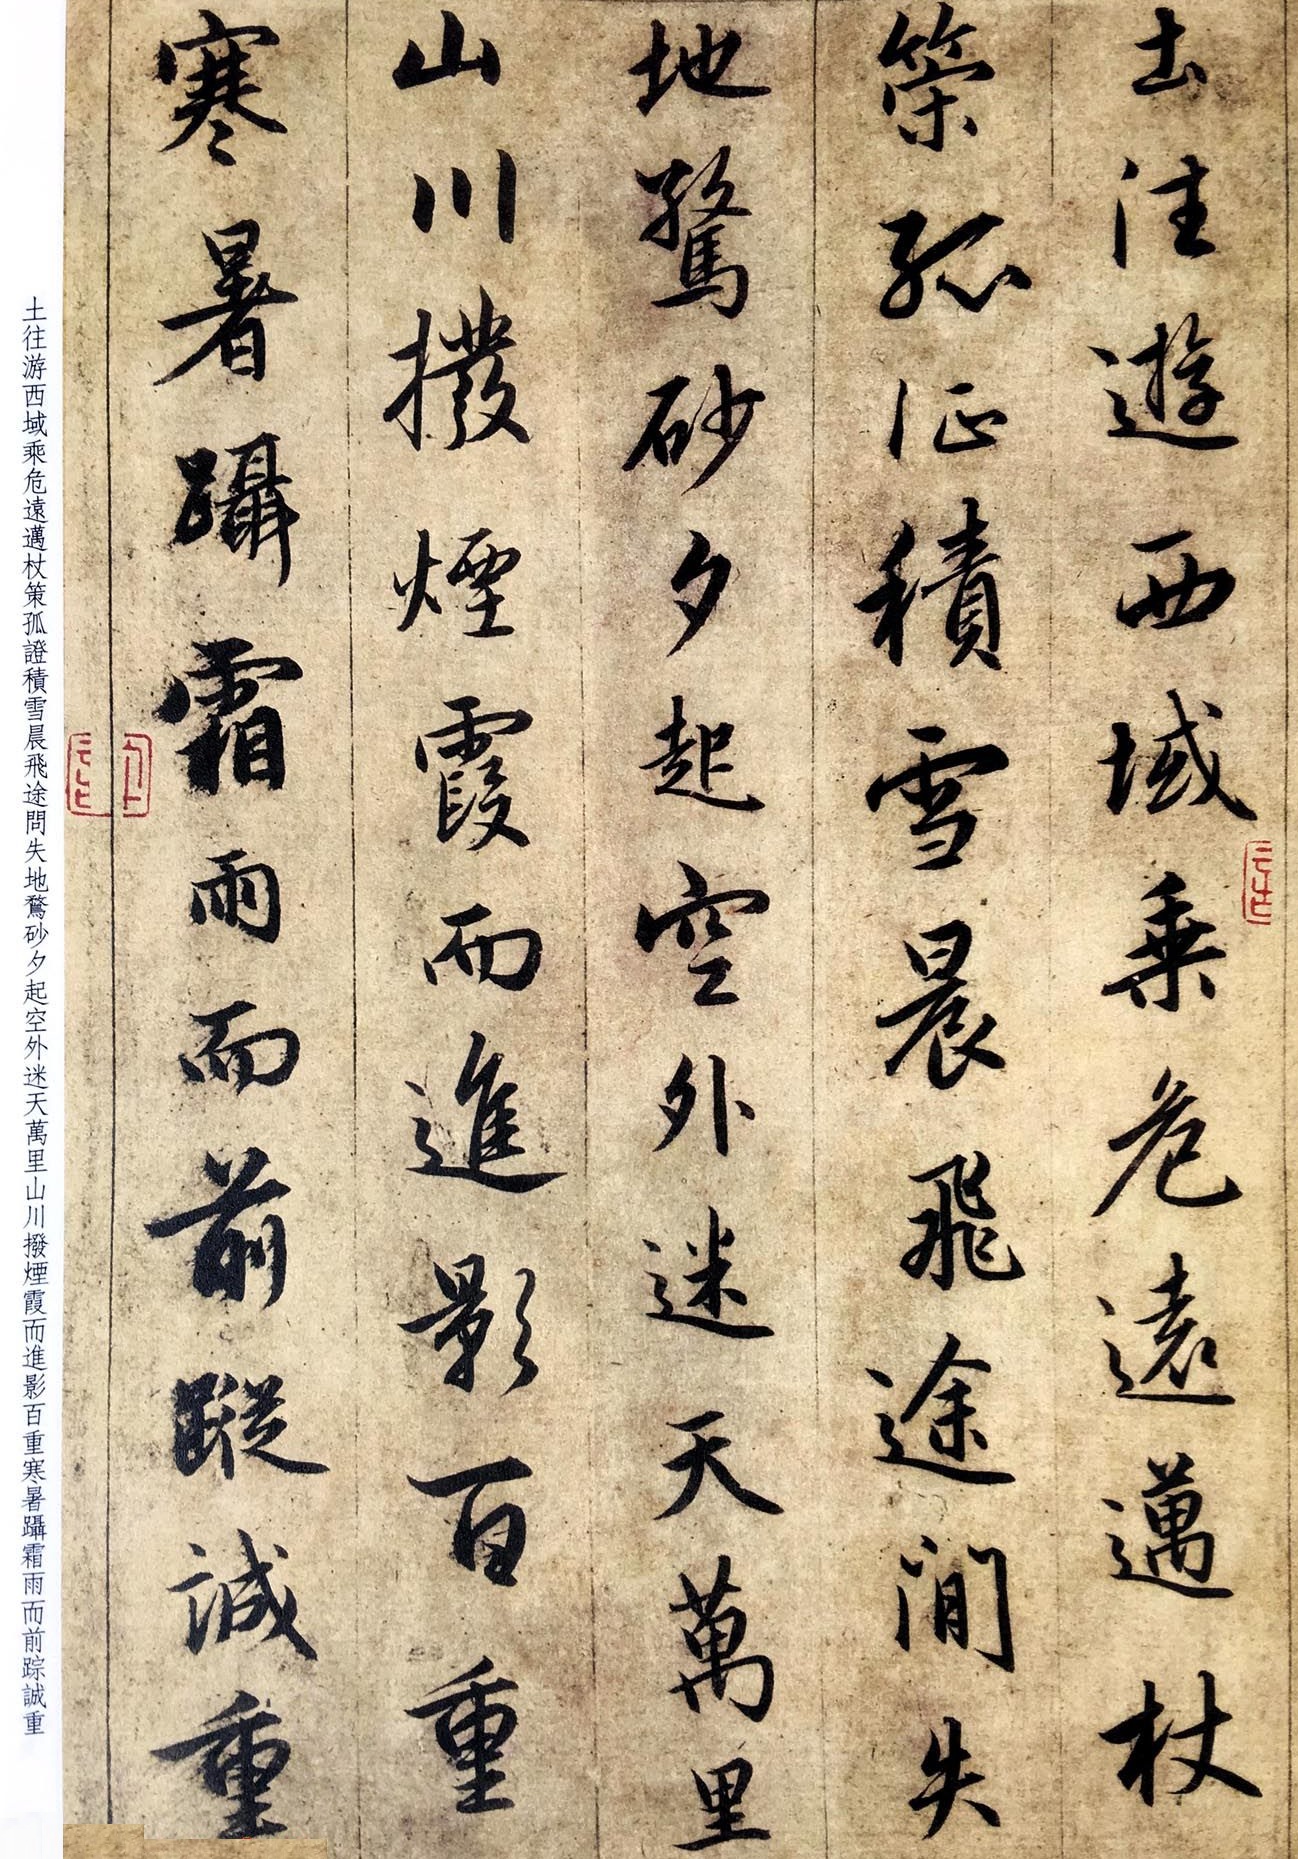 土往遊西域乗危遠邁杖
策孤征積雪晨飛途間失
地驚砂夕起空外迷天萬里
山川撥煙霞而進影百重
寒暑躡霜雨而前蹤誠重
土往游西域乘危遠邁杖策孤證積雪晨飛途問失地鶩砂夕起空外迷天萬里山川撥煙霞而進影百重寒暑躡霜雨而前踪誠重